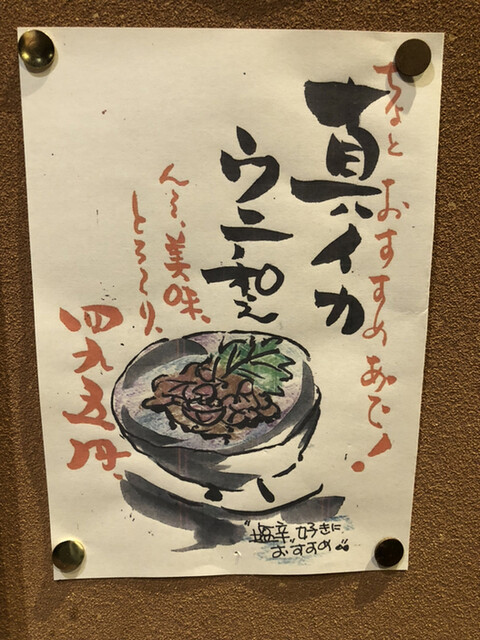 ちょとおすすめあで!
真イカ
ウニ和え
ん〜、美味、
とろ〜り、
四九五円、
"塩辛"好きに
おすすめ